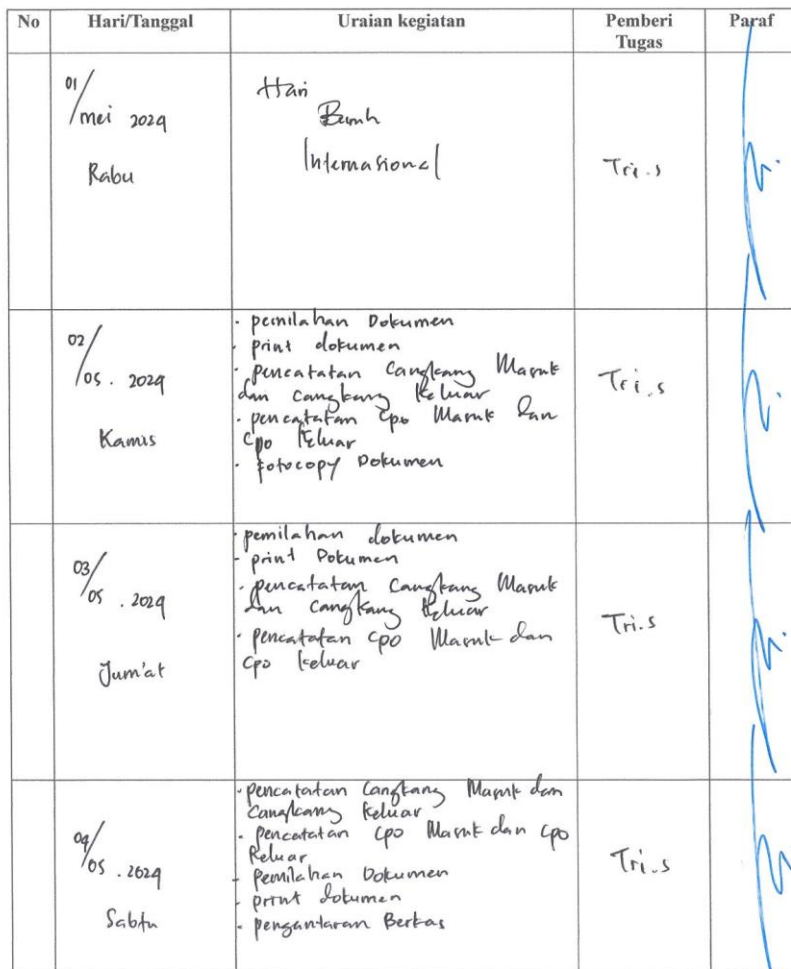 No Hari/Tanggal Uraian kegiatan Pemberi Tugas Paraf
01/mei 2024
Rabu
Hari
Buruh
Internasional
Tri.s
02/05. 2024
Kamis
· pemilahan Dokumen
· print dokumen
· pencatatan Cangkang Masuk
dan cangkang Keluar
· pencatatan cpo Masuk dan
cpo Keluar
· fotocopy Dokumen
Tri.s
03/05. 2024
Jum'at
· pemilahan dokumen
- print Dokumen
· pencatatan cangkang Masuk
dan cangkang Keluar
· pencatatan cpo Masuk dan
cpo keluar
Tri.s
04/05. 2024
Sabtu
· pencatatan cangkang Masuk dan
cangkang keluar
· pencatatan cpo Masuk dan cpo
Keluar
- pemilahan Dokumen
- print dokumen
- pengantaran Berkas
Tri.s